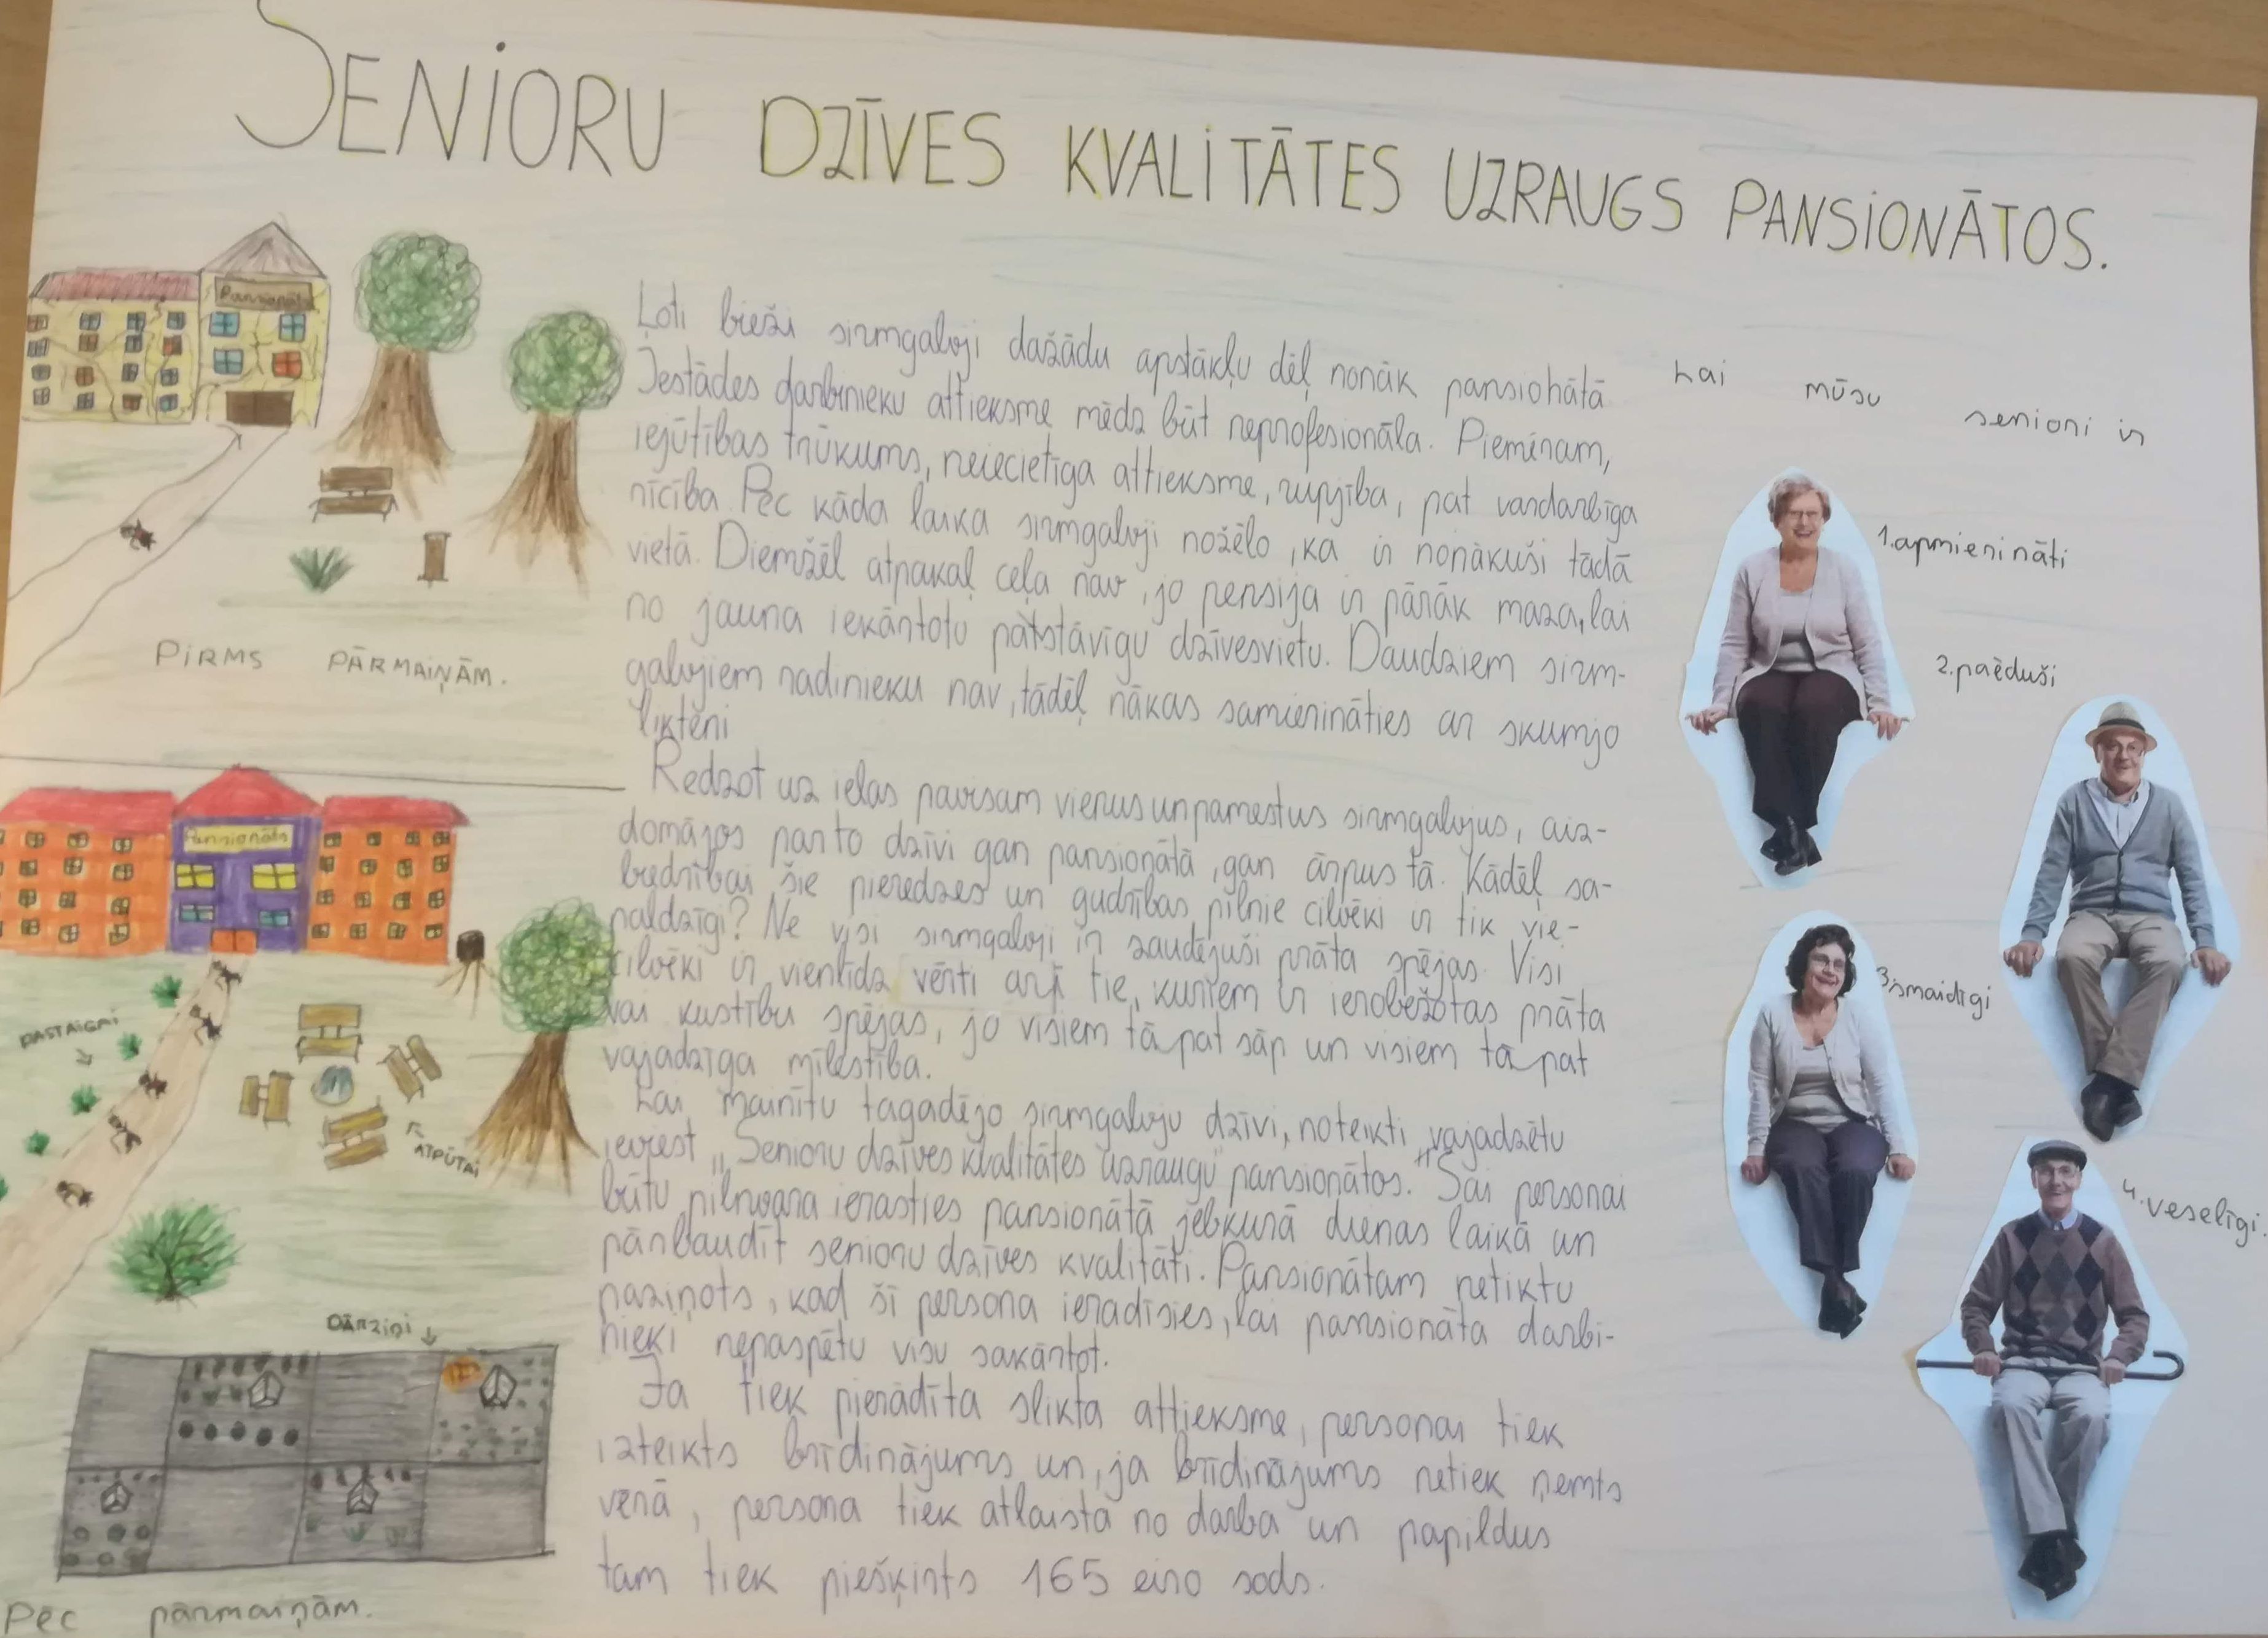 SENIORU DZĪVES KVALITĀTES UZRAUGS PANSIONĀTOS.
Pansionāts
PIRMS PĀRMAIŅĀM.
Ļoti bieži sirmgalvji dažādu apstākļu dēļ nonāk pansionātā
Iestādes darbinieku attieksme mēdz būt neprofesionāla. Piemēram,
iejūtības trūkums, neiecietīga attieksme, rupjība, pat vardarbīga
rīcība. Pēc kāda laika sirmgalvji nožēlo, ka ir nonākuši tādā
vietā. Diemžēl atpakaļ ceļa nav, jo pensija ir pārāk maza, lai
no jauna iekārtotu patstāvīgu dzīvesvietu. Daudziem sirm-
galvjiem radinieku nav, tādēļ nākas samierināties ar skumjo
likteni
Redzot uz ielas pavisam vienus un pamestus sirmgalvjus, aiz-
domājos par to dzīvi gan pansionātā, gan ārpus tā. Kādēļ sa-
biedrībai šie pieredzes un gudrības pilnie cilvēki ir tik vie-
naldzīgi? Ne visi sirmgalvji ir zaudējuši prāta spējas. Visi
cilvēki ir vienlīdz vērti arī tie, kuriem ir ierobežotas prāta
vai kustību spējas, jo visiem tāpat sāp un visiem tāpat
vajadzīga mīlestība.
Lai mainītu tagadējo sirmgalvju dzīvi, noteikti vajadzētu
ieviest „Senioru dzīves kvalitātes uzraugu" pansionātos." Šai personai
būtu pilnvara ierasties pansionātā jebkurā dienas laikā un
pārbaudīt senioru dzīves kvalitāti. Pansionātam netiktu
paziņots, kad šī persona ieradīsies, lai pansionāta darbi-
nieki nepaspētu visu sakārtot.
Ja tiek pierādīta slikta attieksme, personai tiek
izteikts brīdinājums un, ja brīdinājums netiek ņemts
vērā, persona tiek atlaista no darba un papildus
tam tiek piešķirts 165 eiro sods.
Lai mūsu seniori ir
1. apmierināti
2. paēduši
3. smaidīgi
4. veselīgi.
Pansionāts
PASTAIGAI
ATPŪTAI
DĀRZIŅI
Pēc pārmaiņām.